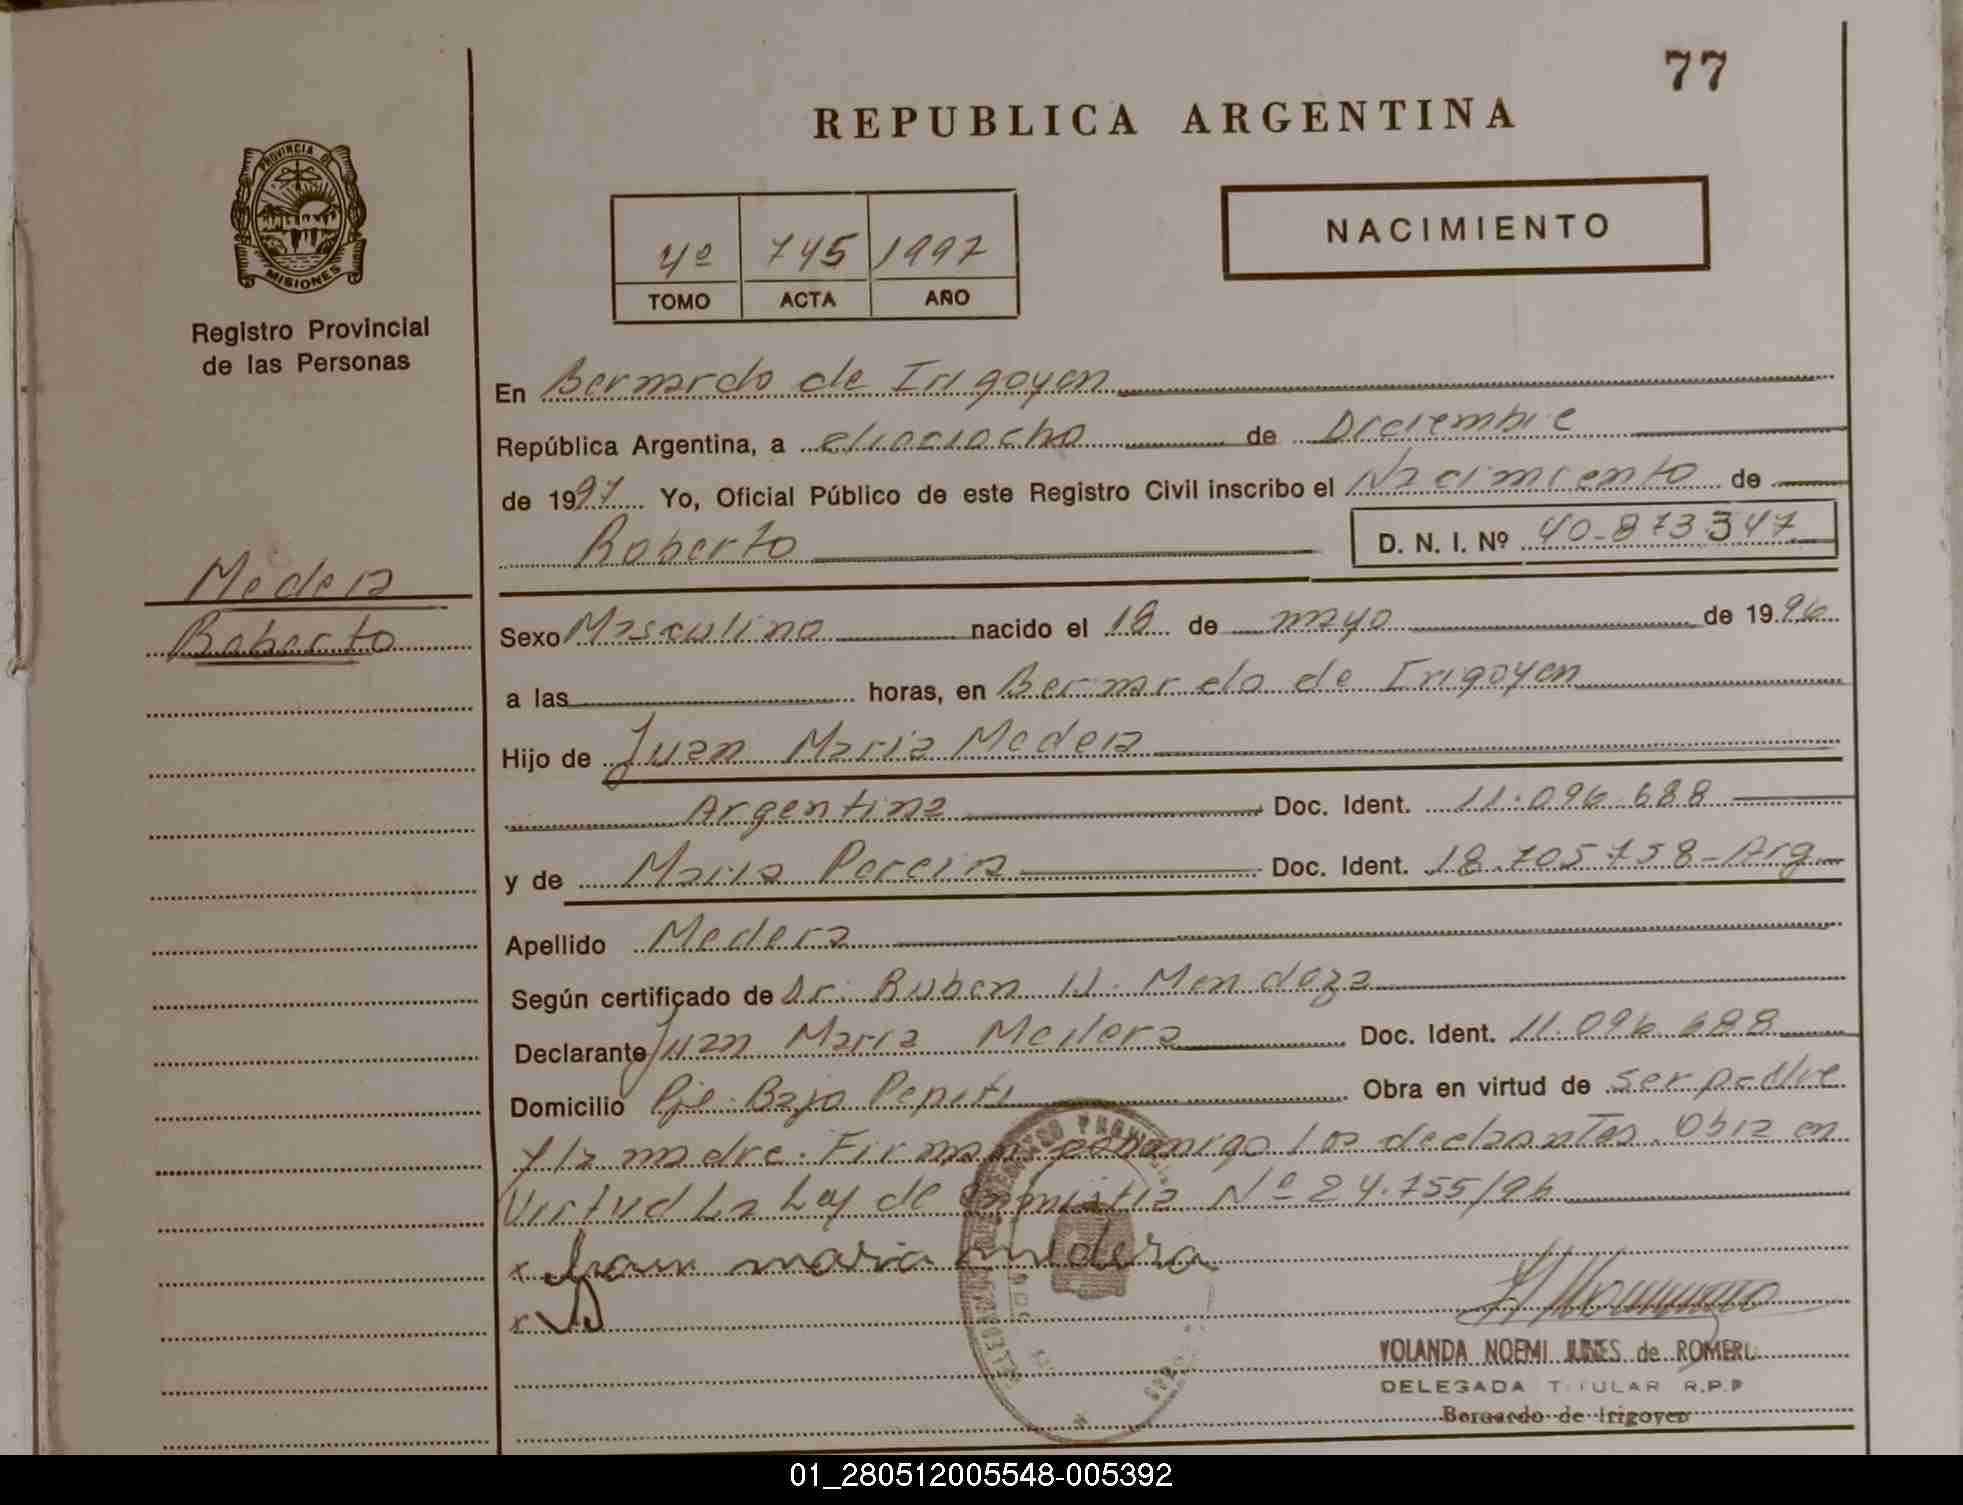 77
REPUBLICA ARGENTINA
PROVINCIA DE
MISIONES
Registro Provincial
de las Personas
4º 745 1997
TOMO ACTA AÑO
NACIMIENTO
En Bernardo de Irigoyen
República Argentina, a dieciocho de Diciembre
de 1997 Yo, Oficial Público de este Registro Civil inscribo el Nacimiento de
Roberto D. N. I. Nº 40-873347
Medera
Roberto
Sexo Masculino nacido el 18 de mayo de 1996
a las horas, en Bernardo de Irigoyen
Hijo de Juan Maria Medera
Argentina Doc. Ident. 11.096.688
y de Maria Pereira Doc. Ident. 18.705.758-Arg
Apellido Medera
Según certificado de Dr. Ruben W. Mendoza
Declarante Juan Maria Medera Doc. Ident. 11.096.688
Domicilio Pje. Bajo Pepiti Obra en virtud de ser padre
y la madre. Firman conmigo los declarantes. Obra en
Virtud La Ley de Amnistia Nº 24.755/96
x Juan maria medera
x
YOLANDA NOEMI de ROMERO
DELEGADA TITULAR R.P.P
Bernardo de Irigoyen
01_280512005548-005392